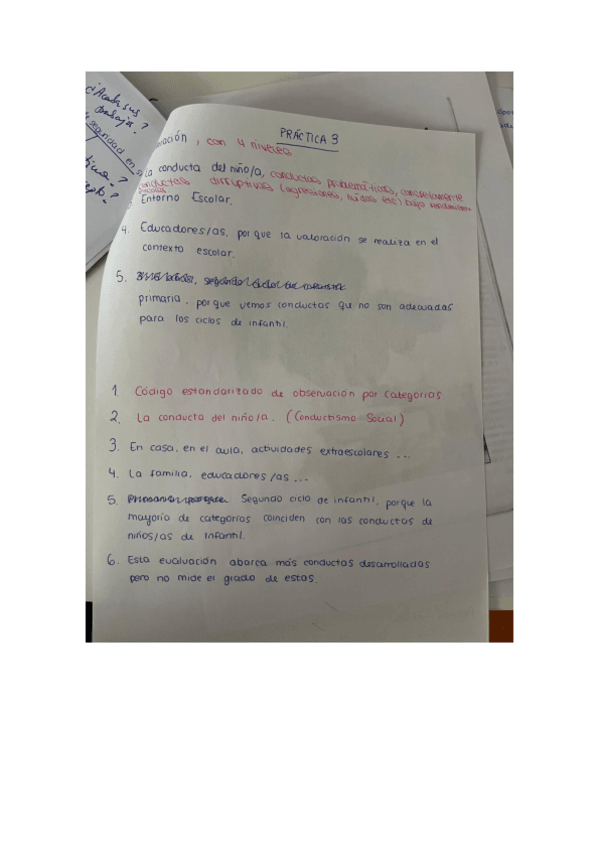 PRÁCTICA 3
, con 4 niveles
la conducta del niño/a, conductas problemáticas, concretamente
conductas disruptivas (agresiones, ruidos etc) bajo
Entorno Escolar.
4. Educadores/as, por que la valoración se realiza en el
contexto escolar.
5.
primaria, porque vemos conductas que no son adecuadas
para los ciclos de infantil.
1. Código estandarizado de observación por categorías
2. La conducta del niño/a. (Conductismo Social)
3. En casa, en el aula, actividades extraescolares ...
4. La familia, educadores/as ...
5. Segundo ciclo de infantil, porque la
mayoría de categorías coinciden con las conductas de
niños/as de Infantil.
6. Esta evaluación abarca más conductas desarrolladas
pero no mide el grado de estas.